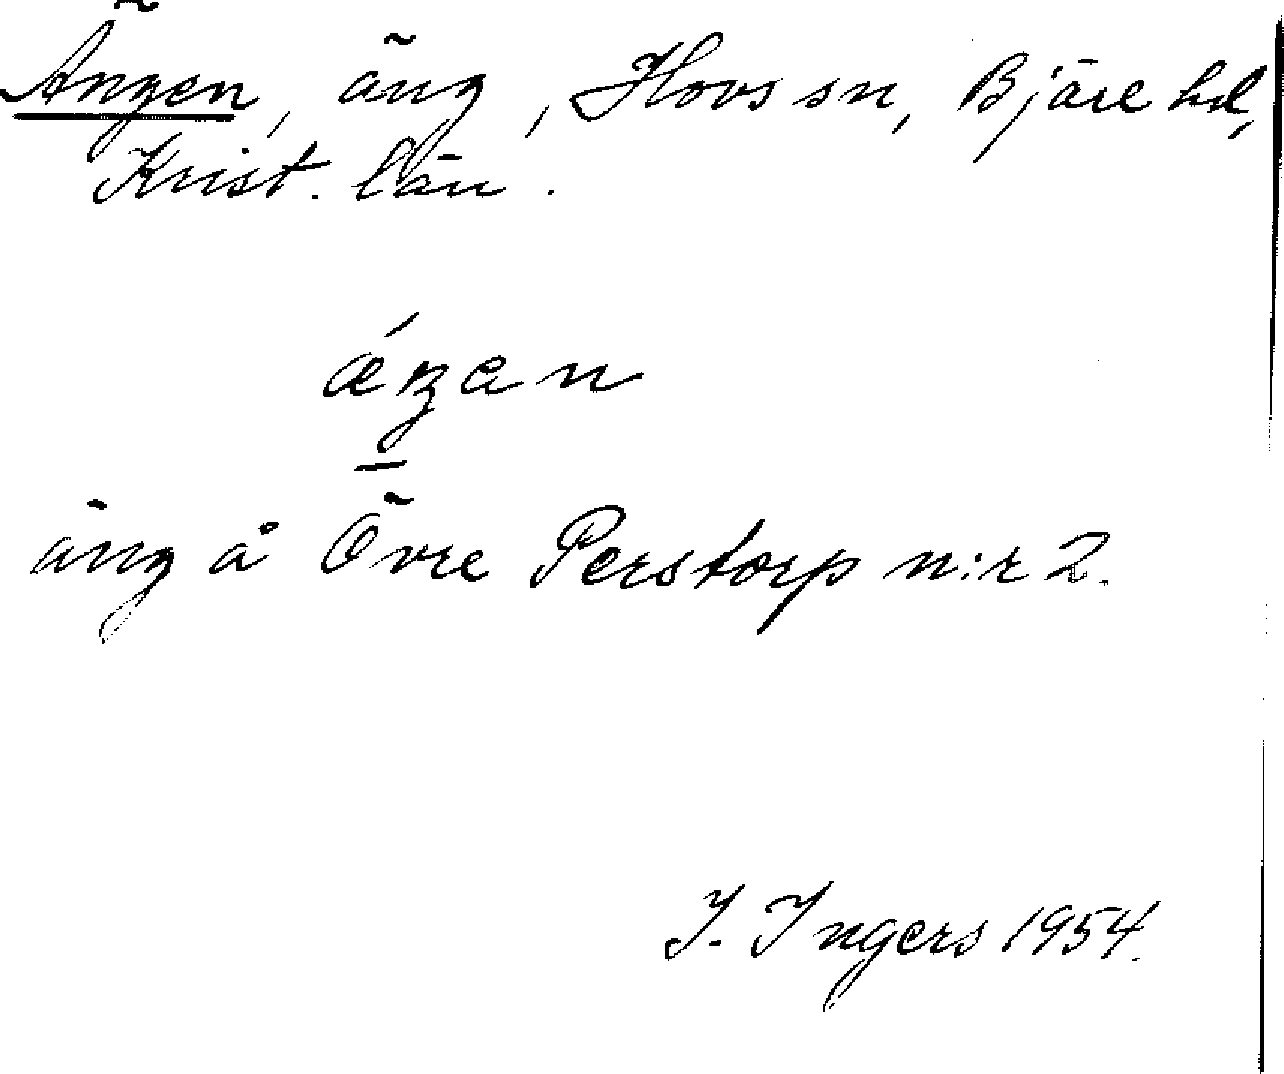 Ängen, äng, Hovs sn, Bjäre hd,
Krist. län.
äng å Övre Perstorp n:r 2.
I. Ingers 1954.